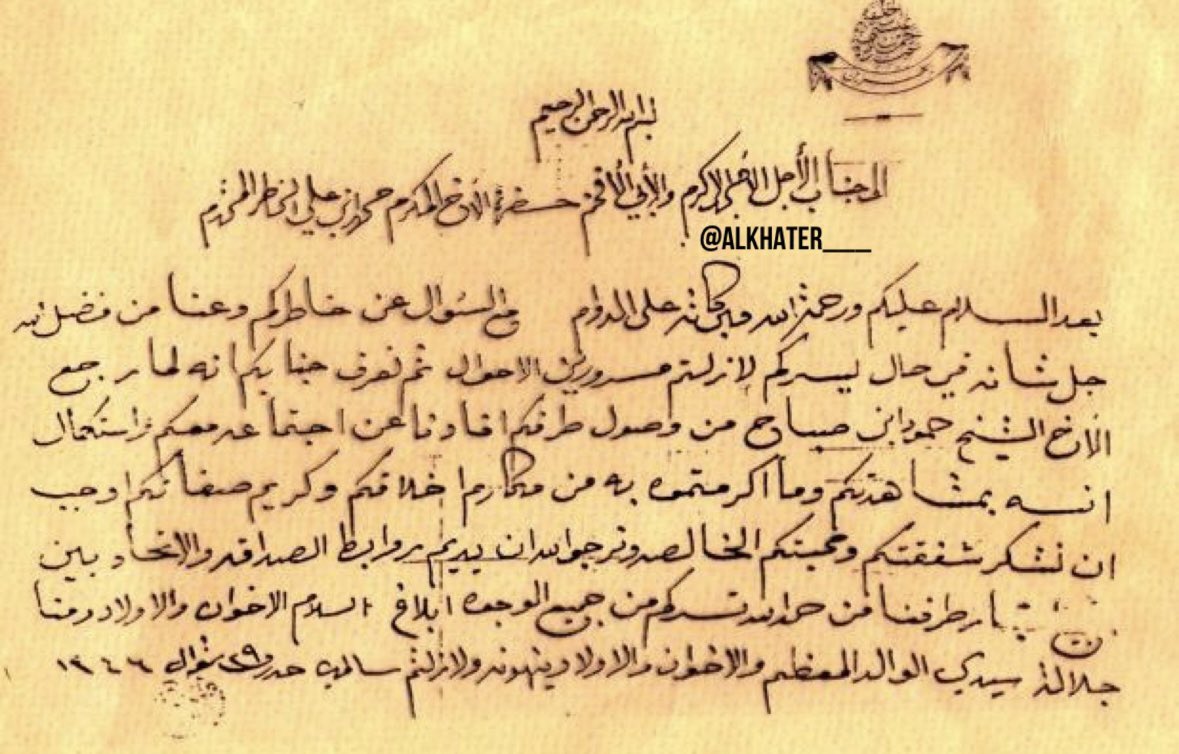 بسم الله الرحمن الرحيم
الى جناب الأجل الأمجد الاكرم والأبر الأفخم حضرة الأخ المكرم حمد ابن علي الخاطر المحترم
@ALKHATER___
بعد السلام عليكم ورحمة الله وبركاته على الدوام مع السؤال عن خاطركم وعنا من فضل الله
جل شانه في حال يسركم لازلتم مسرورين الاحوال ثم نعرف جنابكم انه لما رجع
الأخ الشيخ حمود ابن صباح من وصول طرفكم افادنا عن اجتماعه معكم واستكمال
انسه بمشاهدتكم وما اكرمتموه به من مكارم اخلاقكم وكريم صفاتكم اوجب
ان نشكر شفقتكم ومحبتكم الخالصه ونرجوا الله ان يديم روابط الصداقه والاتحاد بين
طرفنا من حمد الله تسركم من جميع الوجوه ابلاغ السلام الاخوان والاولاد ومنا
جلالة سيدي الوالد المعظم والاخوان والاولاد ينهونه ولازلتم سالمين حرر ٢٩ شوال ١٣٤٦